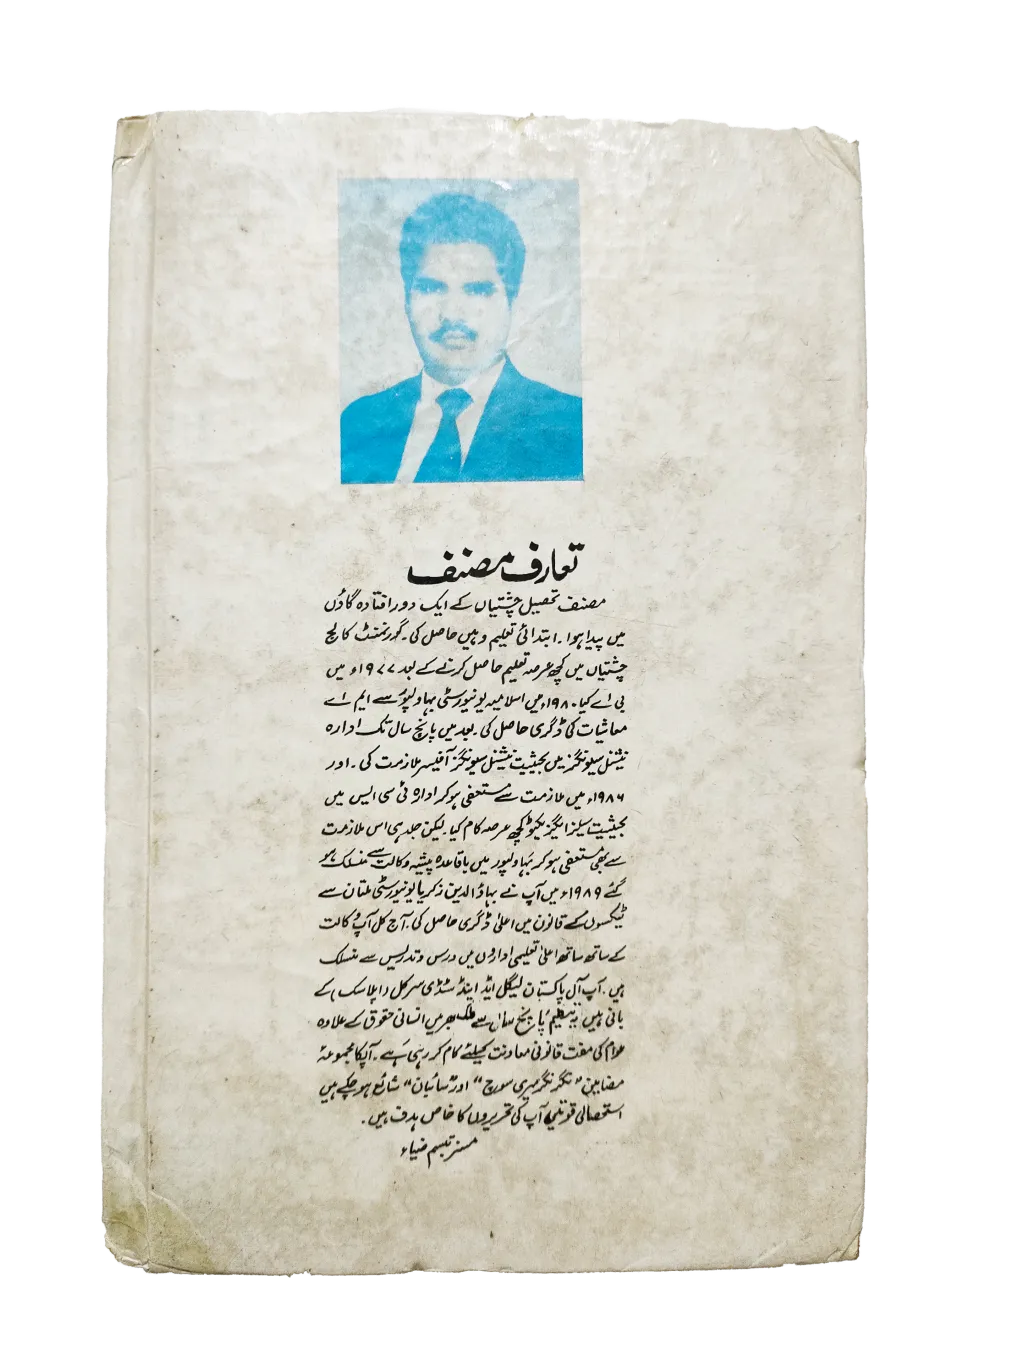 تعارف مصنف
مصنف تحصیل چشتیاں کے ایک دور افتادہ گاؤں
میں پیدا ہوا ۔ ابتدائی تعلیم وہیں حاصل کی۔ گورنمنٹ کالج
چشتیاں میں کچھ عرصہ تعلیم حاصل کرنے کے بعد ۱۹۷۷ء میں
بی اے کیا۔ ۱۹۸۰ء میں اسلامیہ یونیورسٹی بہاولپور سے ایم اے
معاشیات کی ڈگری حاصل کی۔ بعد میں پانچ سال تک ادارہ
نیشنل سیونگز میں بحیثیت نیشنل سیونگز آفیسر ملازمت کی ۔ اور
۱۹۸۶ء میں ملازمت سے مستعفی ہو کر ادارہ ٹی سی ایس میں
بحیثیت سیلز ایگزیکٹو کچھ عرصہ کام کیا۔ لیکن جلد ہی اس ملازمت
سے بھی مستعفی ہو کر بہاولپور میں باقاعدہ پیشہ وکالت سے منسلک ہو
گئے ۱۹۸۹ء میں آپ نے بہاؤالدین زکریا یونیورسٹی ملتان سے
ٹیکسوں کے قانون میں اعلیٰ ڈگری حاصل کی۔ آج کل آپ وکالت
کے ساتھ ساتھ اعلیٰ تعلیمی اداروں میں درس و تدریس سے منسلک
ہیں۔ آپ آل پاکستان لیگل ایڈ اینڈ سٹڈی سرکل (اپلاسک) کے
بانی ہیں یہ تنظیم پانچ سال سے ملک بھر میں انسانی حقوق کے علاوہ
عوام کی مفت قانونی معاونت کیلئے کام کر رہی ہے۔ آپکا مجموعۂ
مضامین "نگر نگر میری سوچ" اور "سائبان" شائع ہو چکے ہیں
استحصالی قوتیں آپ کی تحریروں کا خاص ہدف ہیں۔
مسز تبسم ضیاء